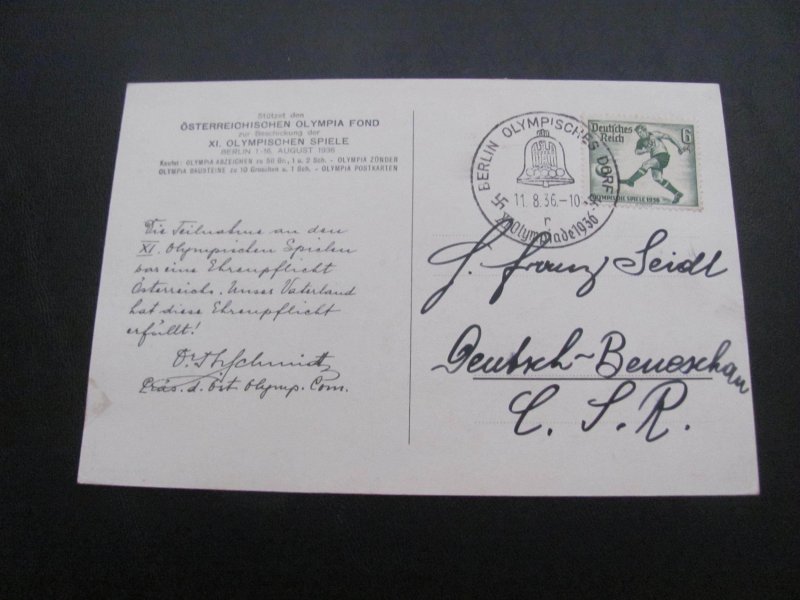 Stützet den
ÖSTERREICHISCHEN OLYMPIA FOND
zur Beschickung der
XI. OLYMPISCHEN SPIELE
BERLIN 1-16. AUGUST 1936
Kaufet: OLYMPIA ABZEICHEN zu 50 Gr., 1 u. 2 Sch. - OLYMPIA ZÜNDER
OLYMPIA BAUSTEINE zu 10 Groschen u. 1 Sch. - OLYMPIA POSTKARTEN
Die Teilnahme an den
XI. Olympischen Spielen
war eine Ehrenpflicht
Österreichs. Unser Vaterland
hat diese Ehrenpflicht
erfüllt!
Dr. Th. Schmidt
Präs. d. Öst. Olymp. Com.
BERLIN OLYMPISCHES DORF
11.8.36.-10
r
XI. Olympiade 1936
Deutsches
Reich
6
OLYMPISCHE SPIELE 1936
Franz Seidl
Deutsch-Beneschau
C. S. R.